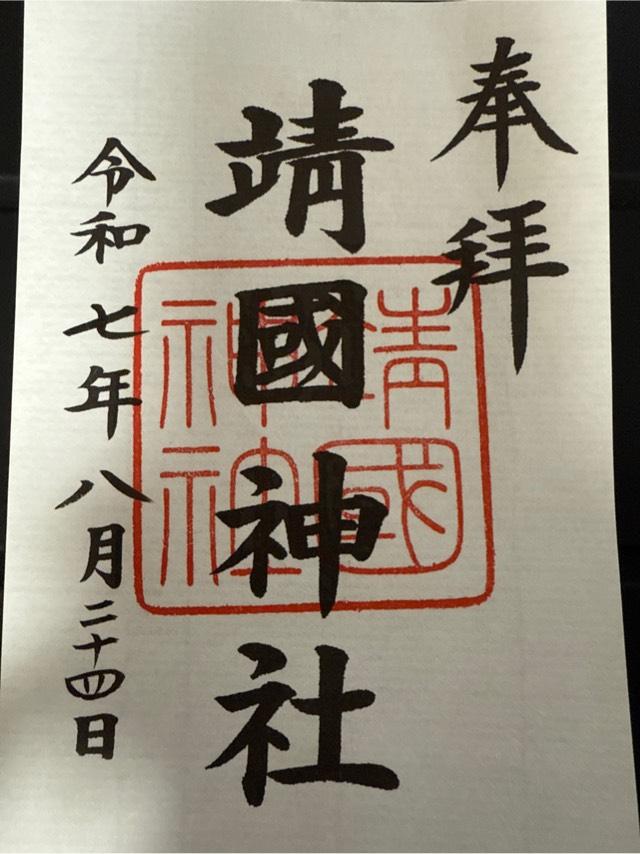 奉拝
靖國神社
靖國
神社
令和七年八月二十四日